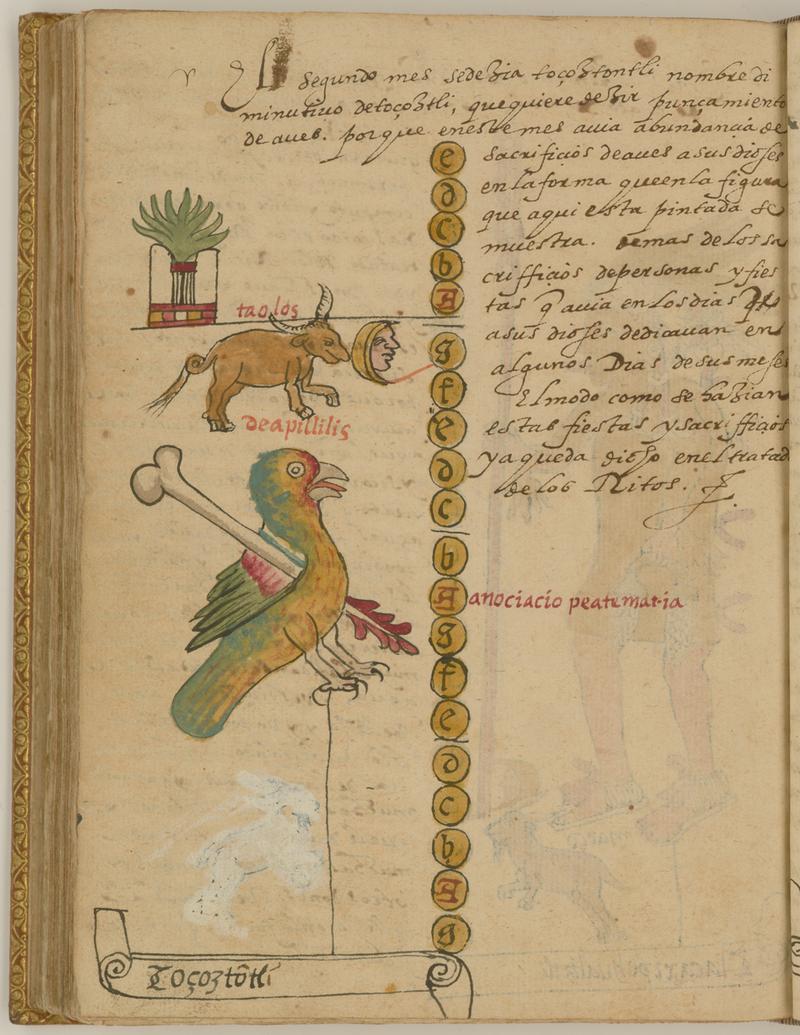 El segundo mes sedezia toçoztontli nombre di
minutiuo detoçoztli, quequiere dezir punçamiento
de aues. porque eneste mes auia abundancia de
sacrificios deaues asusdioses
enlaforma queenla figura
que aqui esta pintada se
muestra. demas delossa
crifficios depersonas yfies
tas q auia enlosdias
asus dioses dedicauan en
algunos Dias desusmeses
Elmodo como se hazian
estas fiestas ysacrifficios
ya queda dicho eneltratad
de los Ritos.
e
d
c
b
A
g
f
e
d
c
b
A
g
f
e
d
c
b
A
g
taolos
deapillilis
anociacio peatemaria
Toçoztõtli